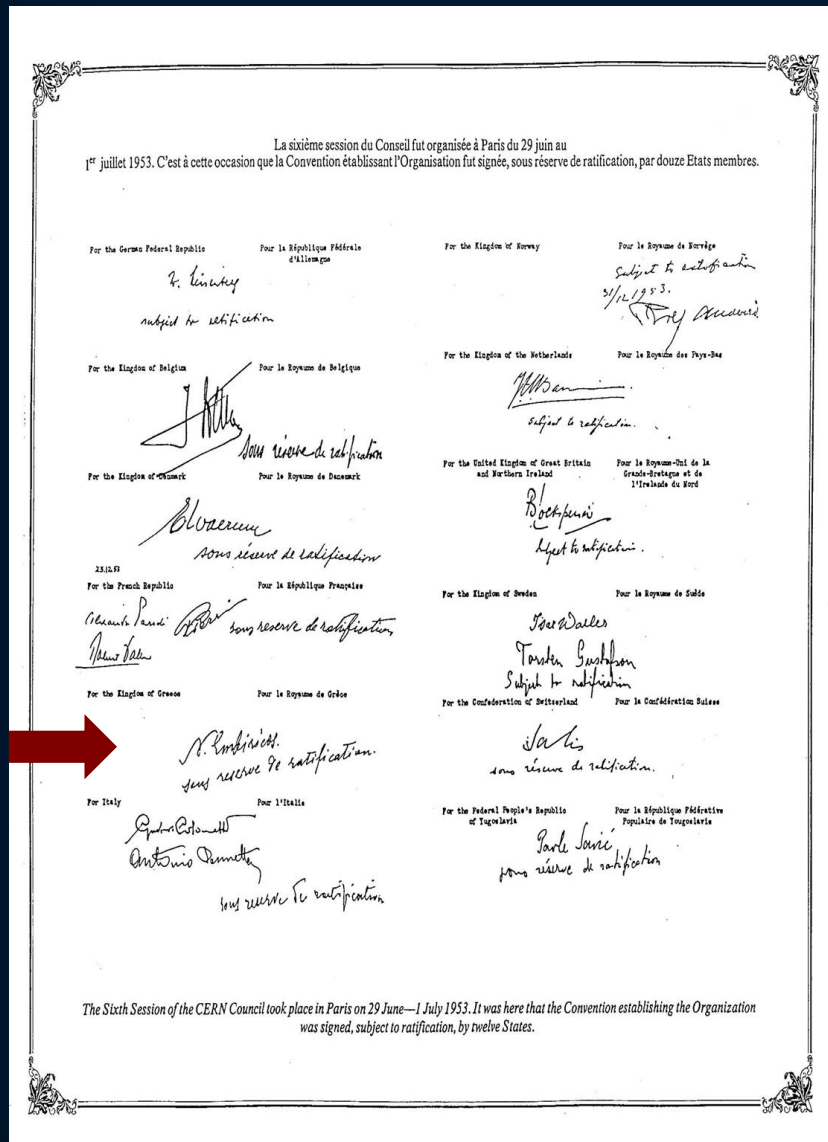 La sixième session du Conseil fut organisée à Paris du 29 juin au
1er juillet 1953. C'est à cette occasion que la Convention établissant l'Organisation fut signée, sous réserve de ratification, par douze Etats membres.
For the German Federal Republic
Pour la République Fédérale
d'Allemagne
subject to ratification
For the Kingdom of Belgium
Pour le Royaume de Belgique
sous réserve de ratification
For the Kingdom of Denmark
Pour le Royaume de Danemark
sous réserve de ratification
23.12.53
For the French Republic
Pour la République Française
sous reserve de ratification
For the Kingdom of Greece
Pour le Royaume de Grèce
N. Embiricos.
sous reserve de ratification.
For Italy
Pour l'Italie
Antonio
sous reserve de ratification
For the Kingdom of Norway
Pour le Royaume de Norvège
Subject to ratification
31/12 1953.
For the Kingdom of the Netherlands
Pour le Royaume des Pays-Bas
subject to ratification.
For the United Kingdom of Great Britain
and Northern Ireland
Pour le Royaume-Uni de la
Grande-Bretagne et de
l'Irelande du Nord
Subject to ratification.
For the Kingdom of Sweden
Pour le Royaume de Suède
Ivar Waller
Torsten Gustafson
Subject to ratification
For the Confederation of Switzerland
Pour la Confédération Suisse
sous réserve de ratification.
For the Federal People's Republic
of Yugoslavia
Pour la République Fédérative
Populaire de Yougoslavie
Pavle Savić
sous réserve de ratification
The Sixth Session of the CERN Council took place in Paris on 29 June—1 July 1953. It was here that the Convention establishing the Organization
was signed, subject to ratification, by twelve States.